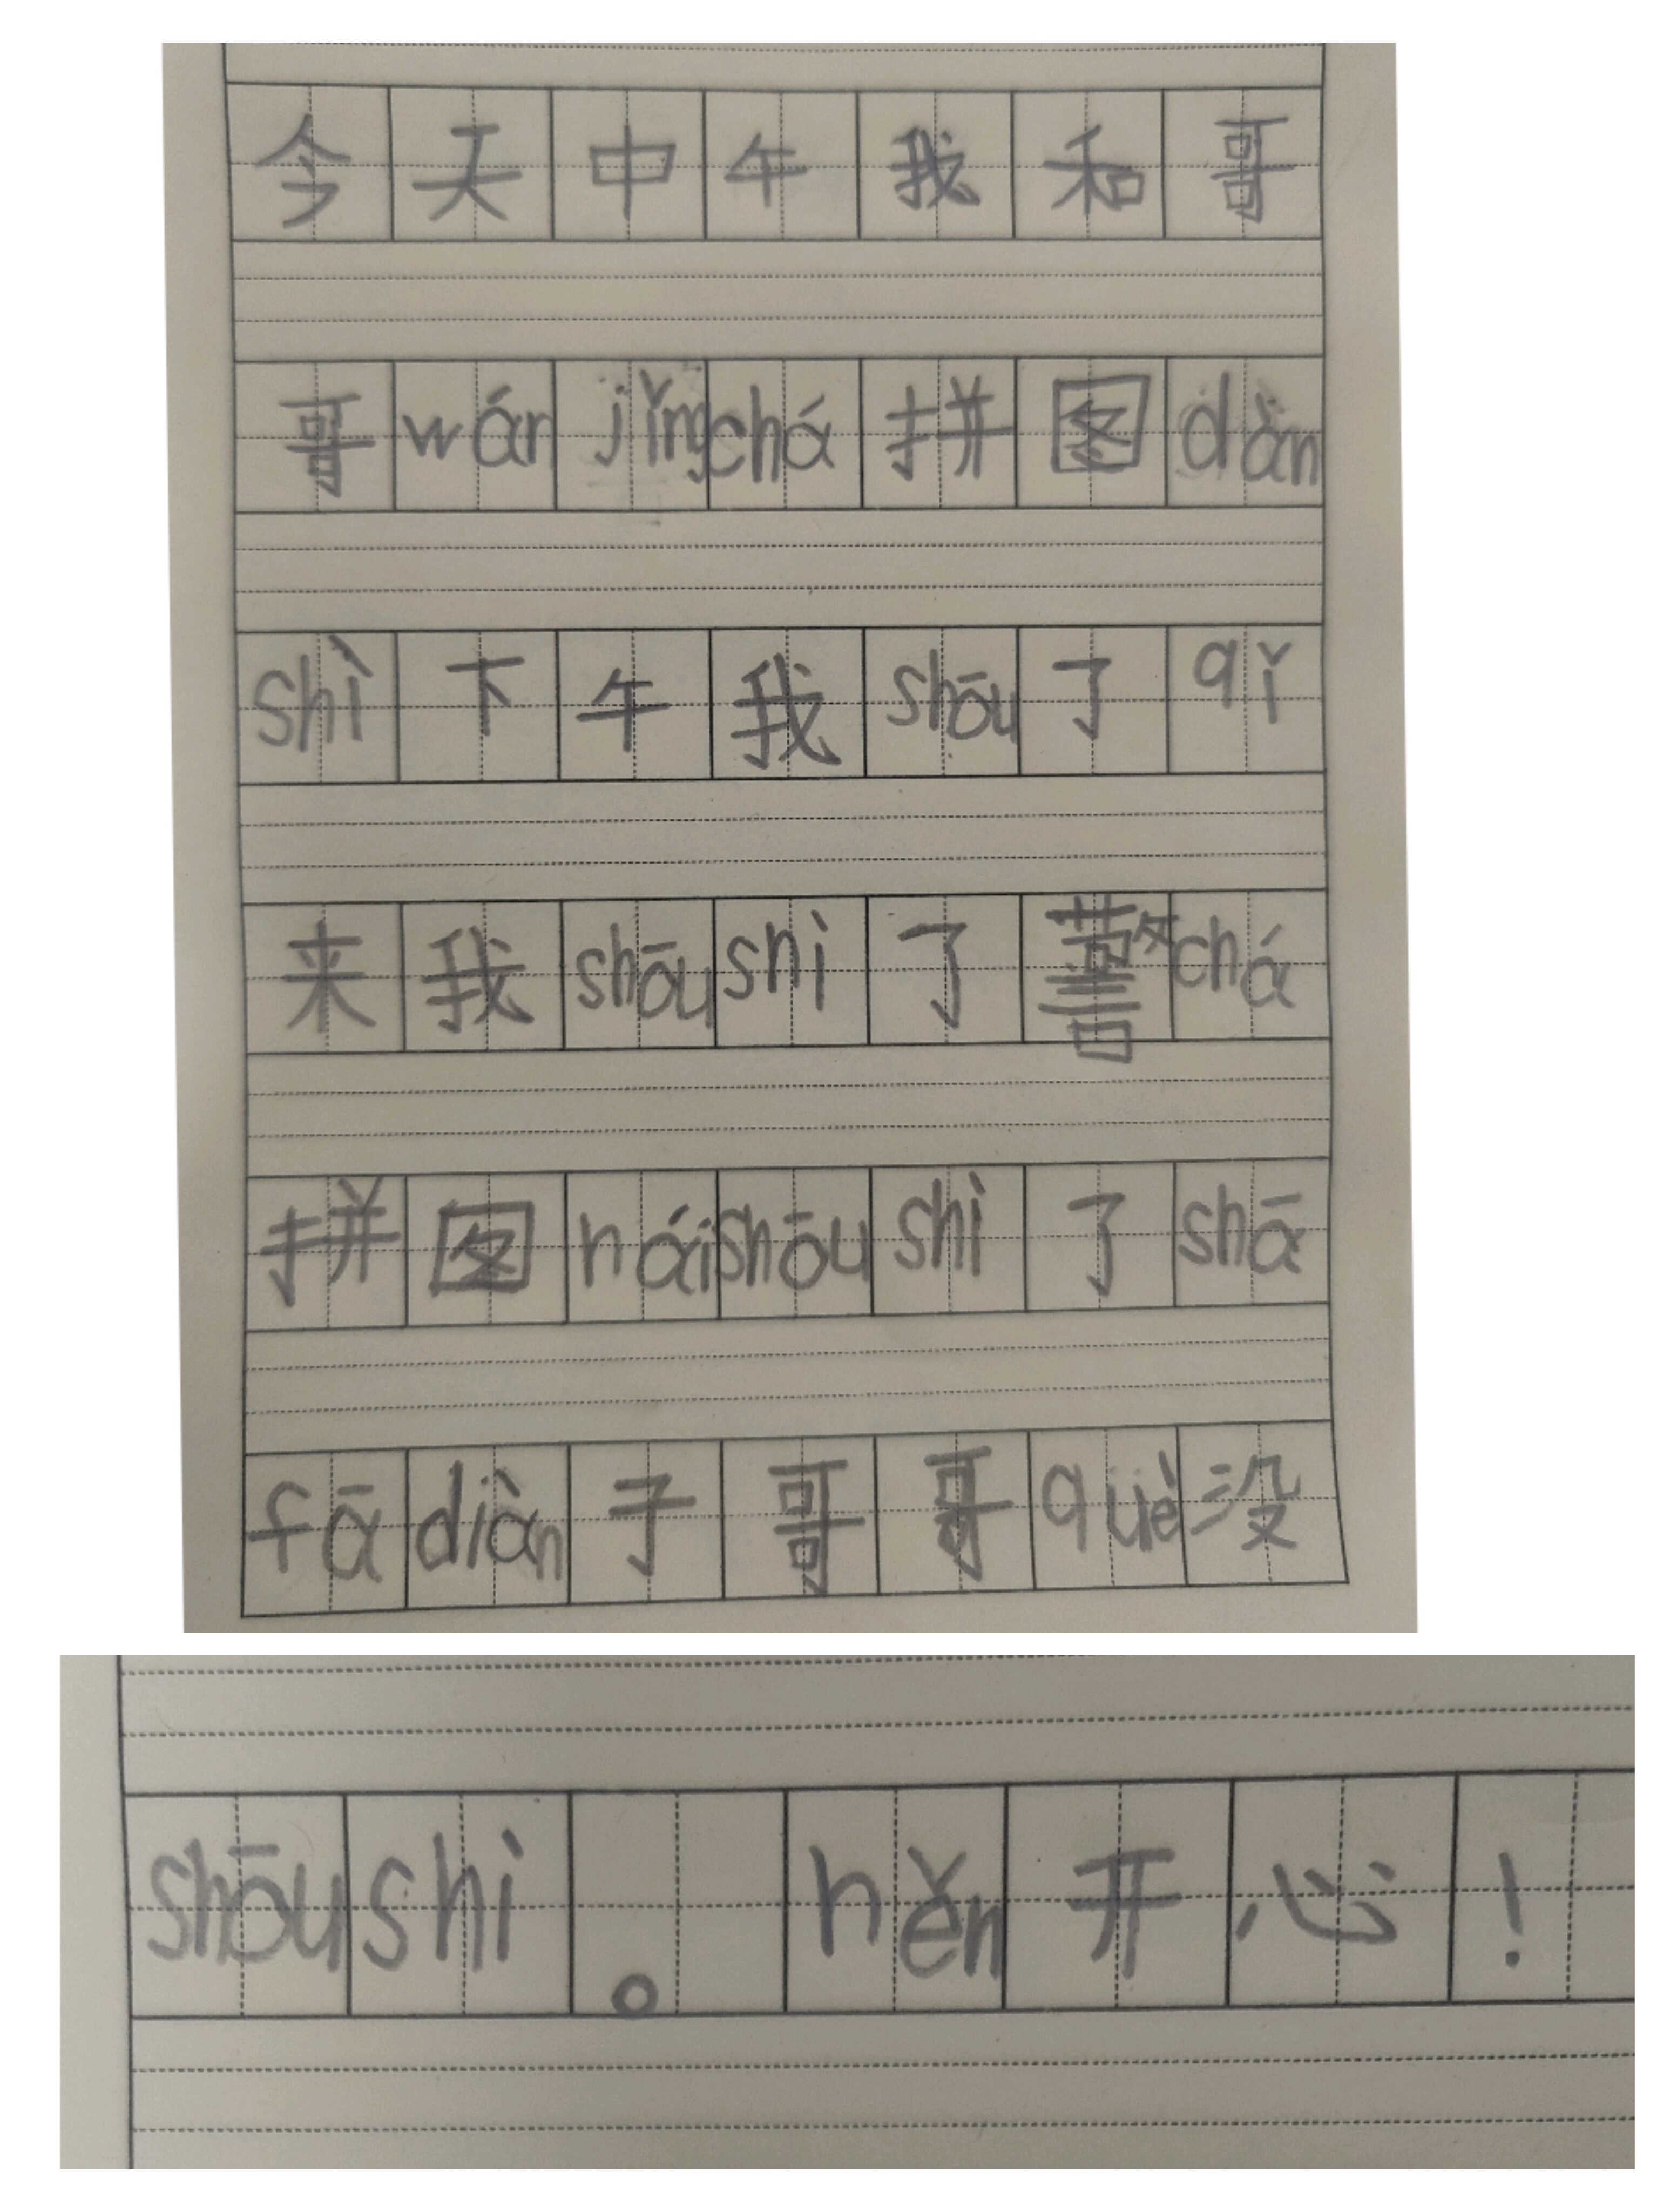 今天中午我和哥
哥wán jǐngchá拼图dǎn
shì下午我shōu了qǐ
来我shōushi了警chá
拼图háishōushi了shā
fādiàn子哥哥què没
shōushi。hěn开心！